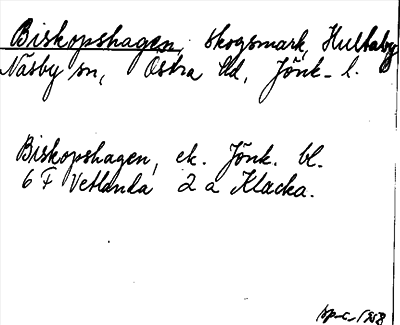 Biskopshagen, skogsmark, Hultaby
Näsby sn, Östra hd, Jönk. l.
Biskopshagen, ek. Jönk. bl.
6 F Vetlanda 2 a Klacka.
1958